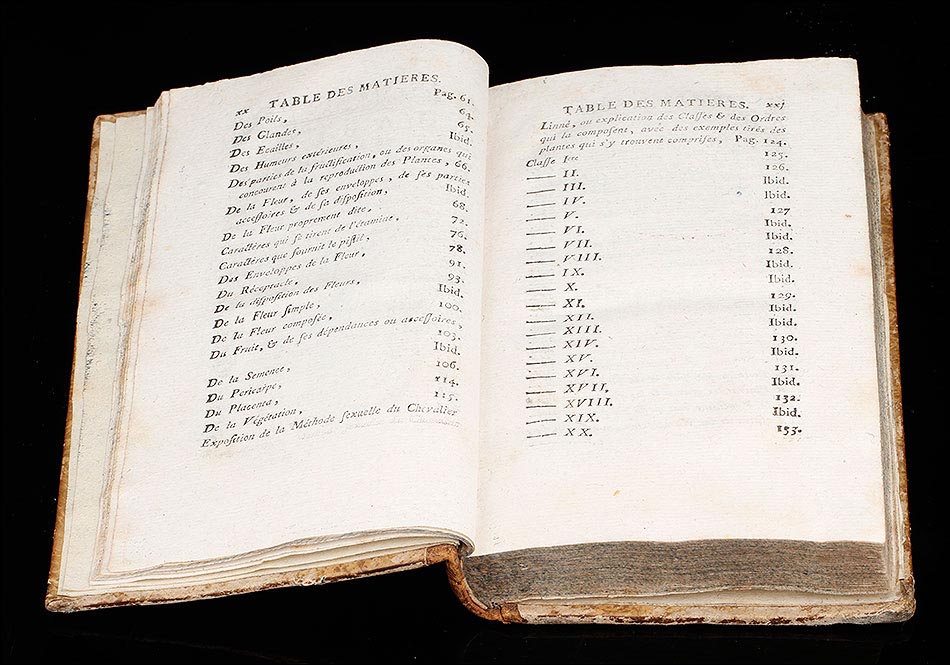 xx TABLE DES MATIERES.
Des Poils, Pag. 61.
Des Glandes, 64.
Des Ecailles, 65.
Des Humeurs extérieures, Ibid.
Des parties de la fructification, ou des organes qui
concourent à la reproduction des Plantes, 66.
De la Fleur, de ses enveloppes, de ses parties
accessoires & de sa disposition, Ibid.
De la Fleur proprement dite, 68.
Caractères qui se tirent de l'étamine, 72.
Caractères que fournit le pistil, 76.
Des Enveloppes de la Fleur, 78.
Du Réceptacle, 91.
De la disposition des Fleurs, 93.
De la Fleur simple, Ibid.
De la Fleur composée, 100.
Du Fruit, & de ses dépendances ou accessoires,
103.
De la Semence, Ibid.
Du Pericarpe, 106.
Du Placenta, 114.
De la Végétation, 115.
Exposition de la Méthode sexuelle du Chevalier
TABLE DES MATIERES. xxj
Linné, ou explication des Classes & des Ordres
qui la composent, avec des exemples tirés des
plantes qui s'y trouvent comprises, Pag. 124.
Classe Iere 125.
—— II. 126.
—— III. Ibid.
—— IV. Ibid.
—— V. 127
—— VI. Ibid.
—— VII. Ibid.
—— VIII. 128.
—— IX. Ibid.
—— X. Ibid.
—— XI. 129.
—— XII. Ibid.
—— XIII. Ibid.
—— XIV. 130.
—— XV. Ibid.
—— XVI. 131.
—— XVII. Ibid.
—— XVIII. 132.
—— XIX. Ibid.
—— XX. 133.